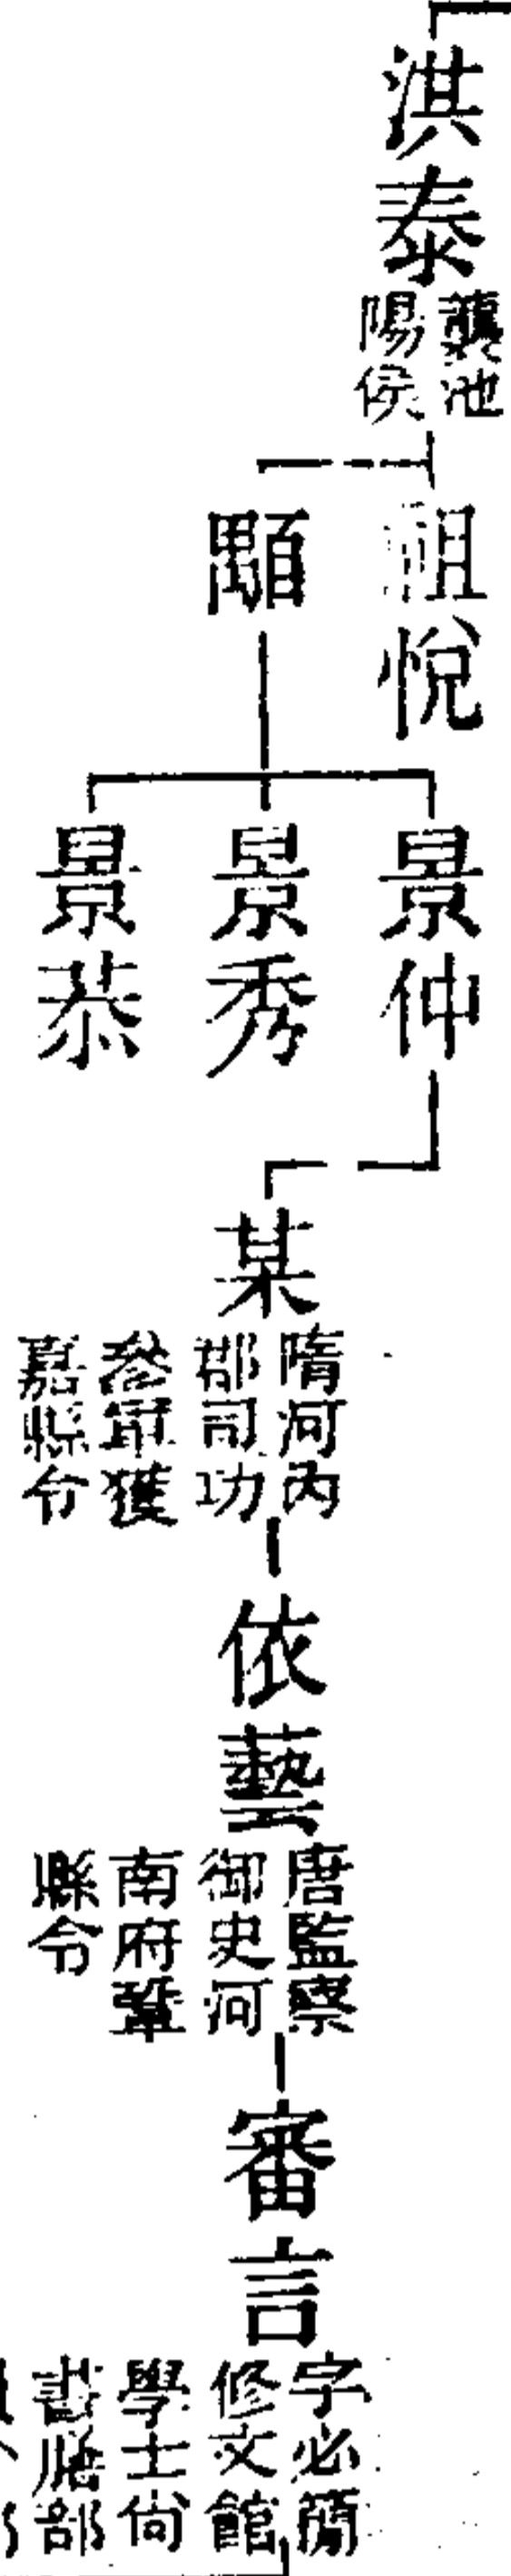 洪泰
襲池
陽侯
祖悅
顒
景仲
景秀
景恭
某
隋河內
郡司功
參軍獲
嘉縣令
依藝
唐監察
御史河
南府鞏
縣令
審言
字必簡
修文館
學士尙
書膳部